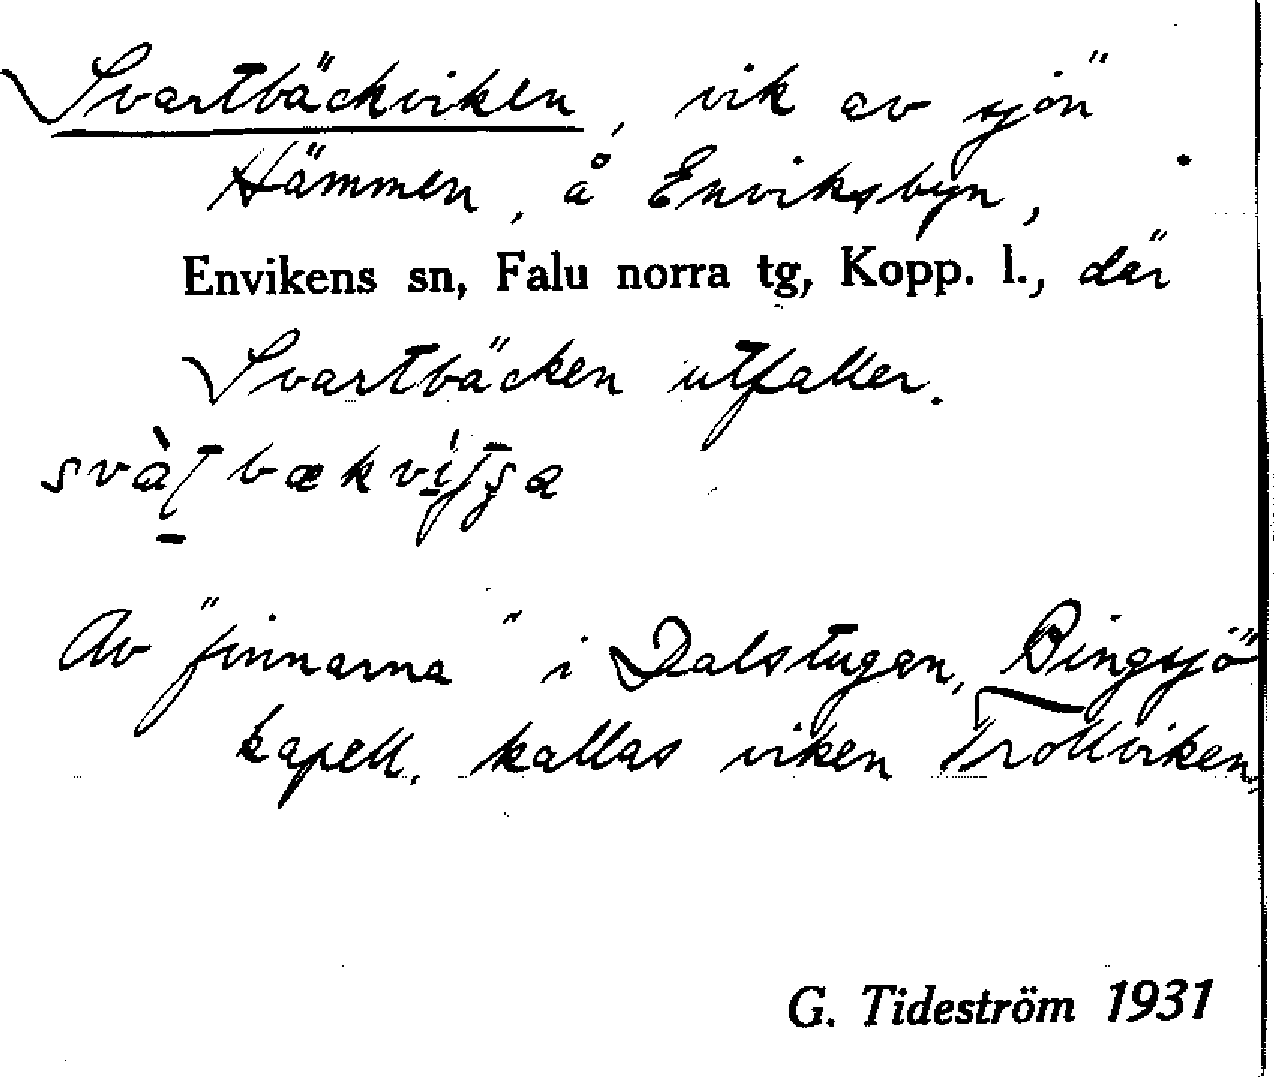 Svartbäckviken, vik av sjön
Hämmen, å Enviksbyn,
Envikens sn, Falu norra tg, Kopp. l., där
Svartbäcken utfaller.
Av "finnarna" i Dalstugan, Bingsjö
kapell, kallas viken Trollviken,
G. Tideström 1931